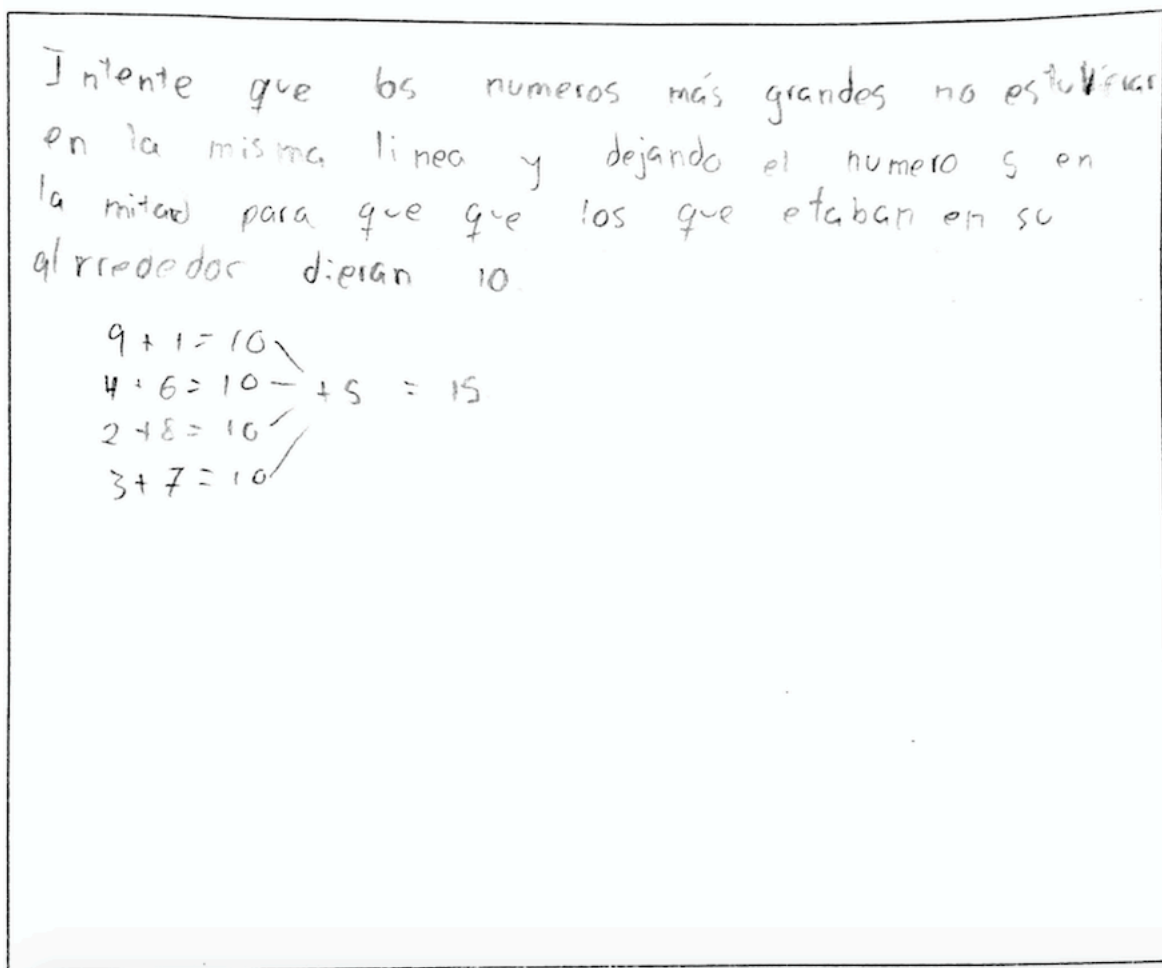 Intente que los numeros más grandes no estuvieran
en la misma linea y dejando el numero 5 en
la mitad para que que los que etaban en su
alrrededor dieran 10
9 + 1 = 10
4 + 6 = 10 + 5 = 15
2 + 8 = 10
3 + 7 = 10